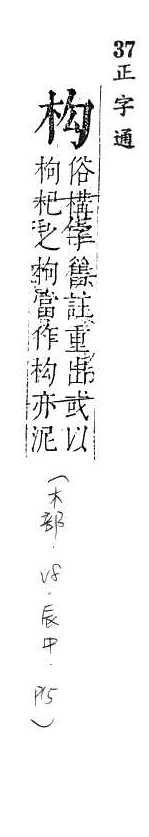 37正字通
构
俗構字舊註重出或以
枸杞之枸當作构亦泥
(木部.V8.辰中.P15)